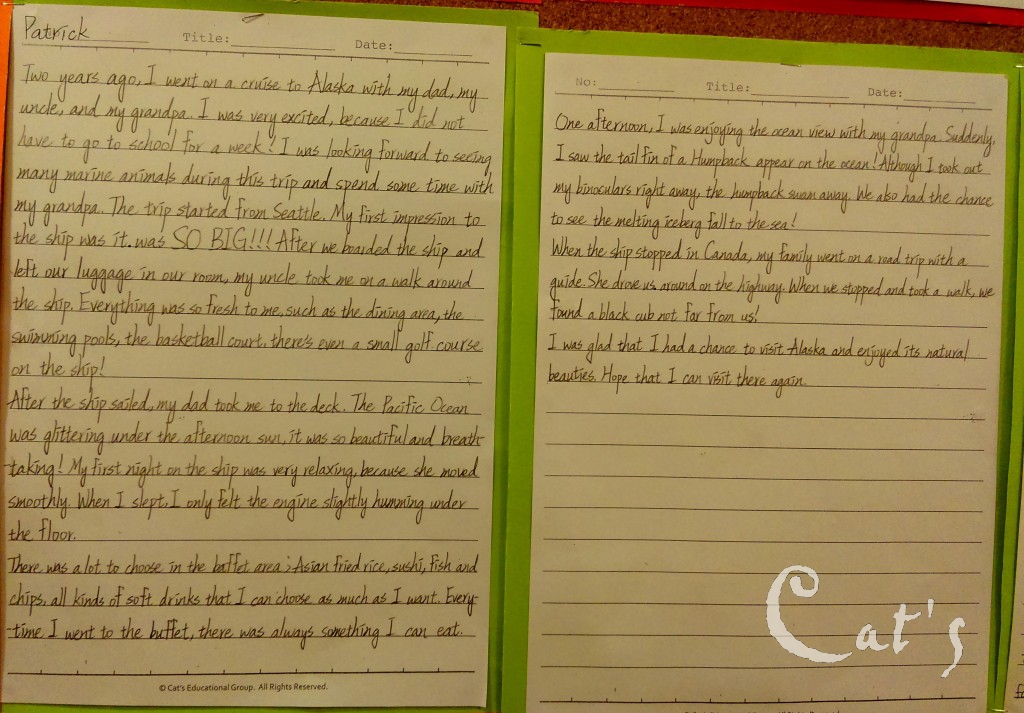 Patrick Title: Date:
Two years ago, I went on a cruise to Alaska with my dad, my
uncle, and my grandpa. I was very excited, because I did not
have to go to school for a week! I was looking forward to seeing
many marine animals during this trip and spend some time with
my grandpa. The trip started from Seattle. My first impression to
the ship was it was SO BIG!!! After we boarded the ship and
left our luggage in our room, my uncle took me on a walk around
the ship. Everything was so fresh to me, such as the dining area, the
swimming pools, the basketball court, there's even a small golf course
on the ship!
After the ship sailed, my dad took me to the deck. The Pacific Ocean
was glittering under the afternoon sun, it was so beautiful and breath-
taking! My first night on the ship was very relaxing, because she moved
smoothly. When I slept, I only felt the engine slightly humming under
the floor.
There was a lot to choose in the buffet area; Asian fried rice, sushi, fish and
chips, all kinds of soft drinks that I can choose as much as I want. Every-
time I went to the buffet, there was always something I can eat.
© Cat's Educational Group. All Rights Reserved.
No: Title: Date:
One afternoon, I was enjoying the ocean view with my grandpa. Suddenly,
I saw the tail fin of a Humpback appear on the ocean! Although I took out
my binoculars right away, the humpback swam away. We also had the chance
to see the melting iceberg fall to the sea!
When the ship stopped in Canada, my family went on a road trip with a
guide. She drove us around on the highway. When we stopped and took a walk, we
found a black cub not far from us!
I was glad that I had a chance to visit Alaska and enjoyed its natural
beauties. Hope that I can visit there again.
Cat's